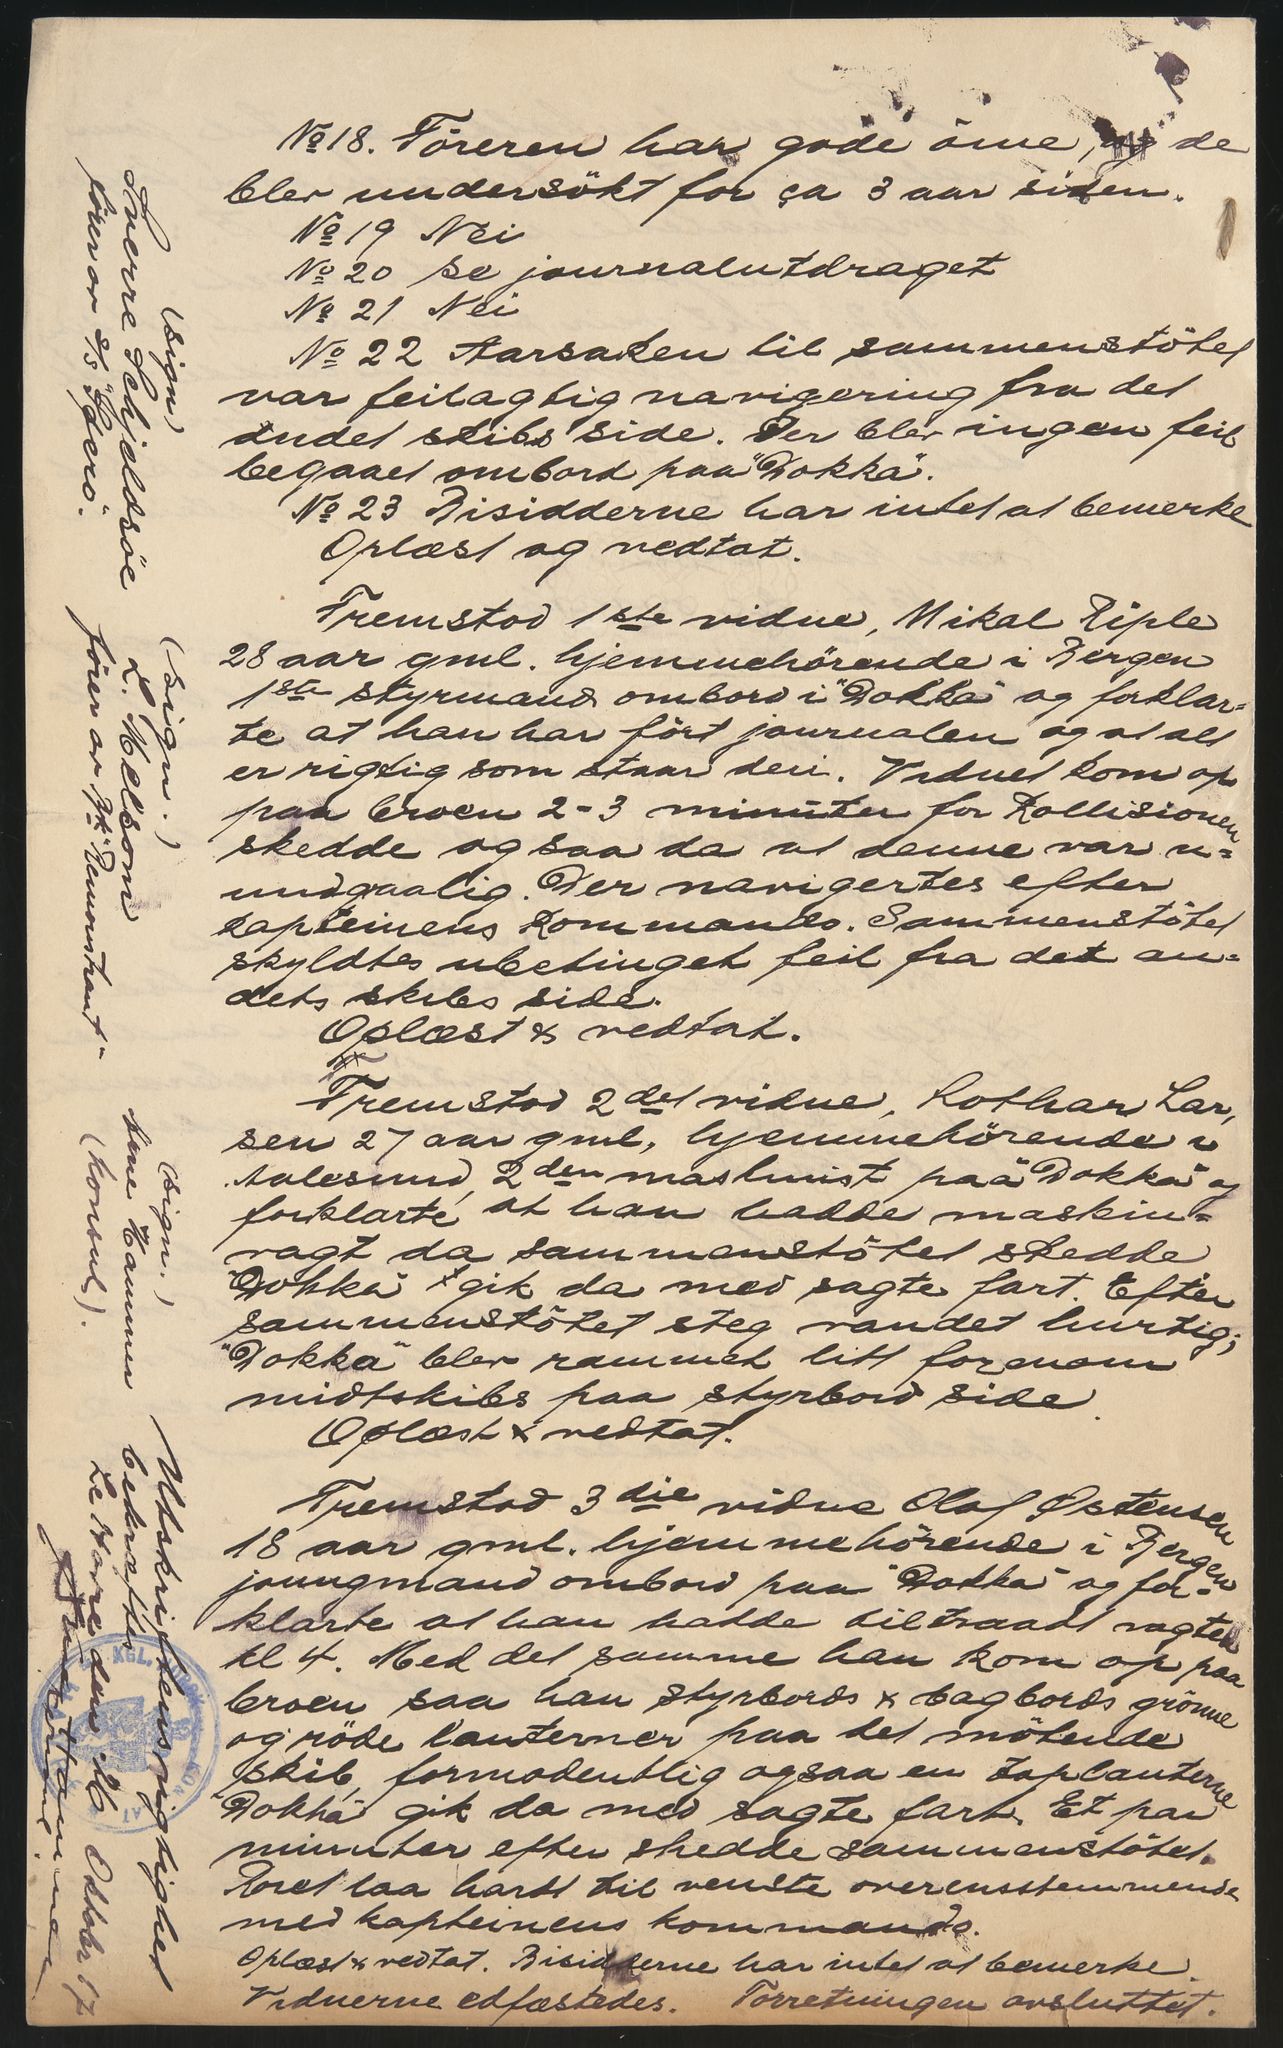 No 18. Föreren har gode öine, og de
blev undersökt for ca 3 aar siden.
No 19 Nei
No 20 se journalutdraget
No 21 Nei
No 22 Aarsaken til sammenstötet
var feilagtig navigering fra det
andet skibs side. Der blev ingen feil
begaaet ombord paa "Dokka".
No 23 Bisidderne har intet at bemerke
Oplæst og vedtat.
Fremstod 1ste vidne, Mikal Riple
28 aar gml. hjemmehörende i Bergen
1ste styrmand ombord i "Dokka" og forklar=
te at han har fört journalen og at alt
er rigtig som staar deri. Vidnet kom op
paa broen 2-3 minuter for Kollisionen
skedde og saa da at denne var u=
undgaalig. Der navigertes efter
kapteinens Kommando. Sammenstötet
skyldtes ubetinget feil fra det an=
dets skibs side.
Oplæst & vedtat.
Fremstod 2det vidne, Lothar Lar,
sen 27 aar gml, hjemmehörende i
Aalesund, 2den maskinist paa "Dokka" og
forklarte at han hadde maskin=
vagt da sammenstötet skedde
"Dokka" gik da med sagte fart. Efter
sammenstötet steg vandet hurtig;
"Dokka" blev rammet litt forenom
midtskibs paa styrbord side.
Oplæst & vedtat.
Fremstod 3die vidne Olaf Østensen
18 aar gml. hjemmehörende i Bergen
joungmand ombord paa "Dokka" og for=
klarte at han hadde tiltraadt vagten
kl 4. Med det samme han kom op paa
broen saa han styrbords & bagbords grönne
og röde lanterner paa det mötende
skib, formodentlig ogsaa en toplanterne
"Dokka" gik da med sagte fart. Et par
minuter efter skedde sammenstötet.
Roret laa hardt til venste overensstemmende
med kapteinens kommando.
Oplæst & vedtat. Bisidderne har intet at bemerke.
Vidnerne edfæstedes. Forretningen avsluttet.
(sign)
Sverre Schjeldsöe
förer av s/s "Ederö".
(sign.)
L. Melsom
förer av "Remonstrant"
(sign.)
(Konsul).
Utskriftens rigtighet
bekræftes
Le Havre den 16 Oktober 17